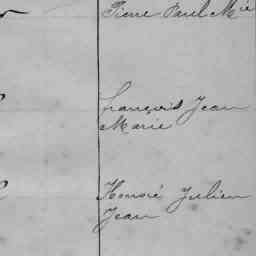 Pierre Paul M^ie
François Jean
Marie
Honoré Julien
Jean